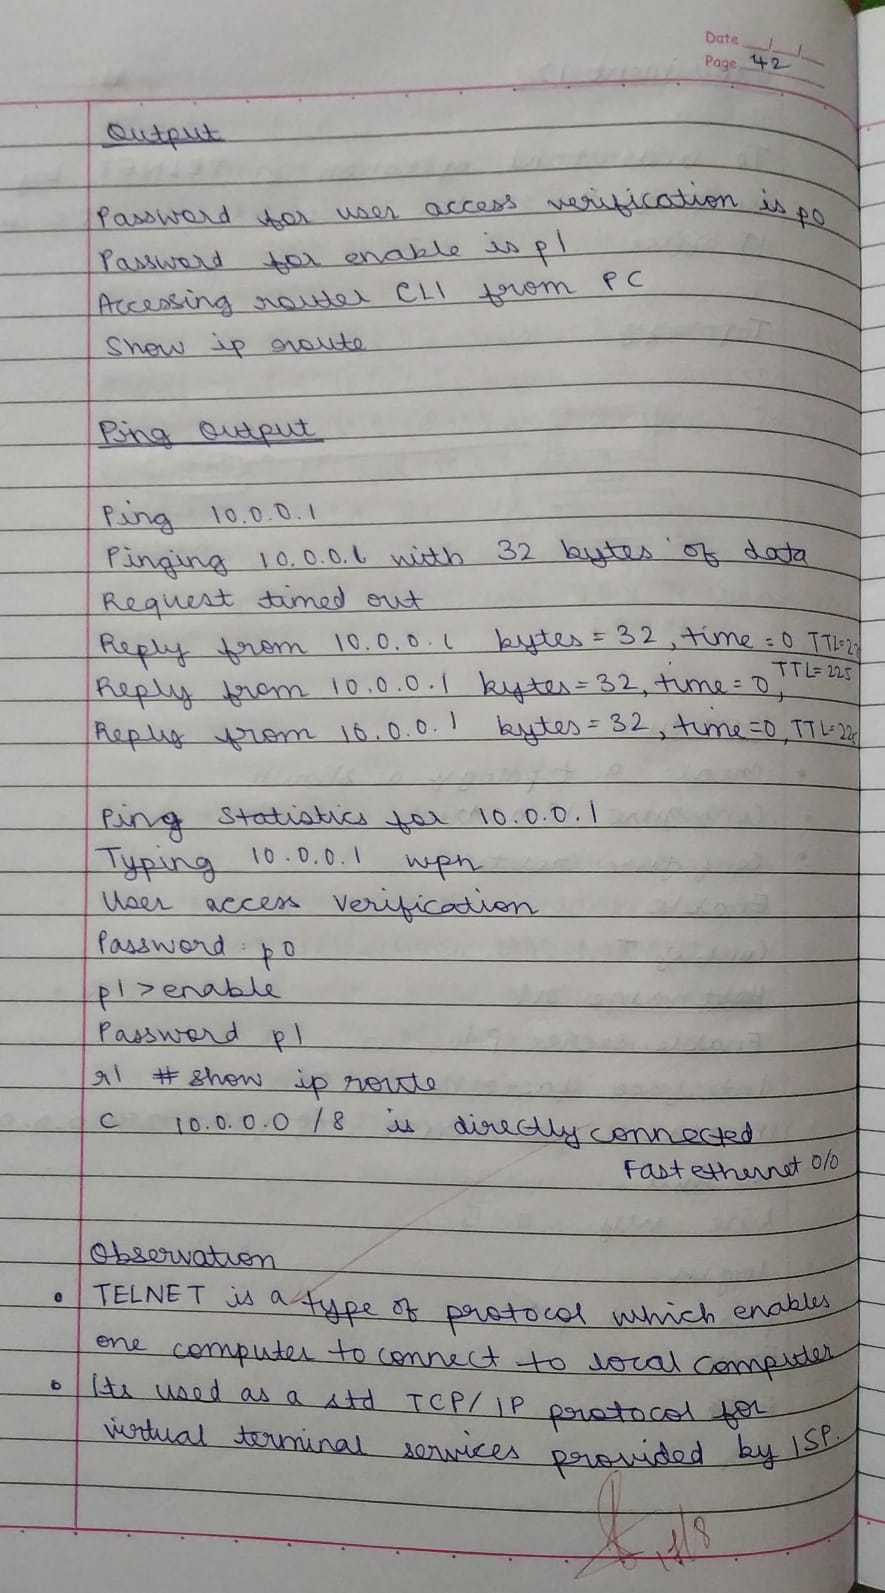 Date __/__/__
Page 42
Output
Password for user access verification is p0
Password for enable is p1
Accessing router CLI from PC
Show ip route
Ping Output
Ping 10.0.0.1
Pinging 10.0.0.1 with 32 bytes of data
Request timed out
Reply from 10.0.0.1 bytes = 32, time = 0 TTL=22
Reply from 10.0.0.1 bytes = 32, time = 0, TTL= 225
Reply from 10.0.0.1 bytes = 32, time =0, TTL=22
Ping Statistics for 10.0.0.1
Typing 10.0.0.1 wph
User access verification
Password : p0
p1 > enable
Password p1
r1 # show ip route
C 10.0.0.0 / 8 is directly connected
Fast ethernet 0/0
Observation
• TELNET is a type of protocol which enables
one computer to connect to local computer
• Its used as a std TCP / IP protocol for
virtual terminal services provided by ISP.